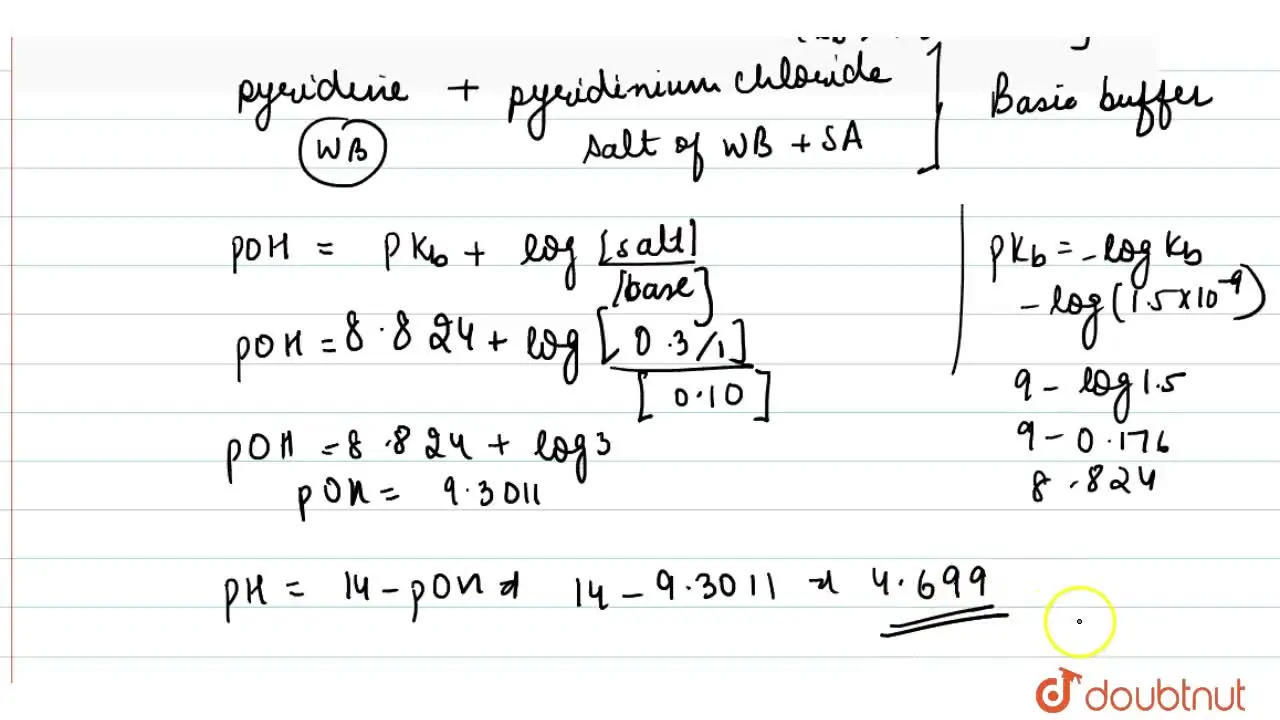 pyridine + pyridinium chloride ] Basic buffer
WB salt of WB + SA
pOH = pKb + log [salt]/[base]
pOH = 8.824 + log [0.3/1]/[0.10]
pOH = 8.824 + log 3
pOH = 9.3011
pKb = -log Kb
- log (1.5×10⁻⁹)
9 - log 1.5
9 - 0.176
8.824
pH = 14 - pOH ⇒ 14 - 9.3011 ⇒ 4.699
doubtnut